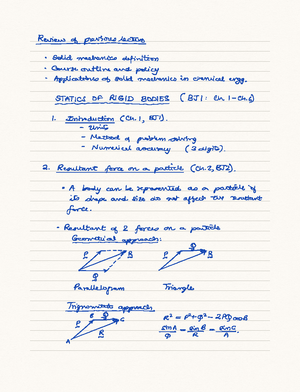 Review of previous lecture
• Solid mechanics definition
• Course outline and policy
• Applications of solid mechanics in chemical engg.
STATICS OF RIGID BODIES (BJ1: Ch. 1-Ch. 6)
1. Introduction (Ch. 1, BJ1).
- Units
- Method of problem solving
- Numerical accuracy (3 digits).
2. Resultant force on a particle (Ch. 2, BJ1).
• A body can be represented as a particle if
its shape and size do not affect the resultant
force.
• Resultant of 2 forces on a particle
Geometrical approach:
P R P R
Q Q
Parallelogram Triangle
Trigonometric approach
B Q C
P R
A
R² = P² + Q² - 2PQ cosB
sinA/Q = sinB/R = sinC/A.